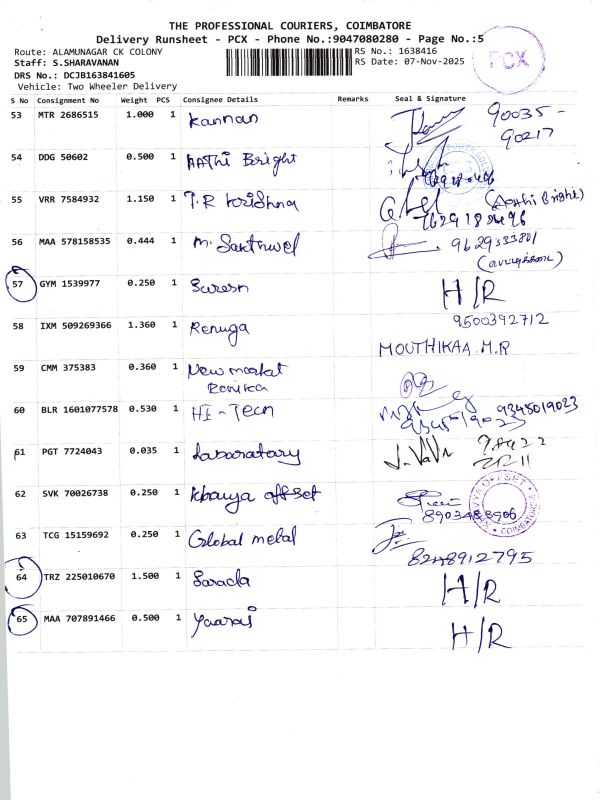 THE PROFESSIONAL COURIERS, COIMBATORE
Delivery Runsheet - PCX - Phone No.:9047080280 - Page No.:5
Route: ALAMUNAGAR CK COLONY
RS No.: 1638416
Staff: S.SHARAVANAN
RS Date: 07-Nov-2025
PCX
DRS No.: DCJB163841605
Vehicle: Two Wheeler Delivery
S No Consignment No Weight PCS Consignee Details Remarks Seal & Signature
53 MTR 2686515 1.000 1 Kannan 90035-
90217
54 DDG 50602 0.500 1 AATHi Bright
55 VRR 7584932 1.150 1 T.R Krishna (Aathi Bright)
7629182496
56 MAA 578158535 0.444 1 M. Sakthivel 9629533801
57 GYM 1539977 0.250 1 Suresh H/R
58 IXM 509269366 1.360 1 Renuga 9500392712
MOUTHIKAA M.R
59 CMM 375383 0.360 1 New market
60 BLR 1601077578 0.530 1 HI-Tech 9345019023
61 PGT 7724043 0.035 1 Laboratary
62 SVK 70026738 0.250 1 Kbavya offset
8903488906
63 TCG 15159692 0.250 1 Global metal
8248912795
64 TRZ 225010670 1.500 1 Sarada H/R
65 MAA 707891466 0.500 1 H/R